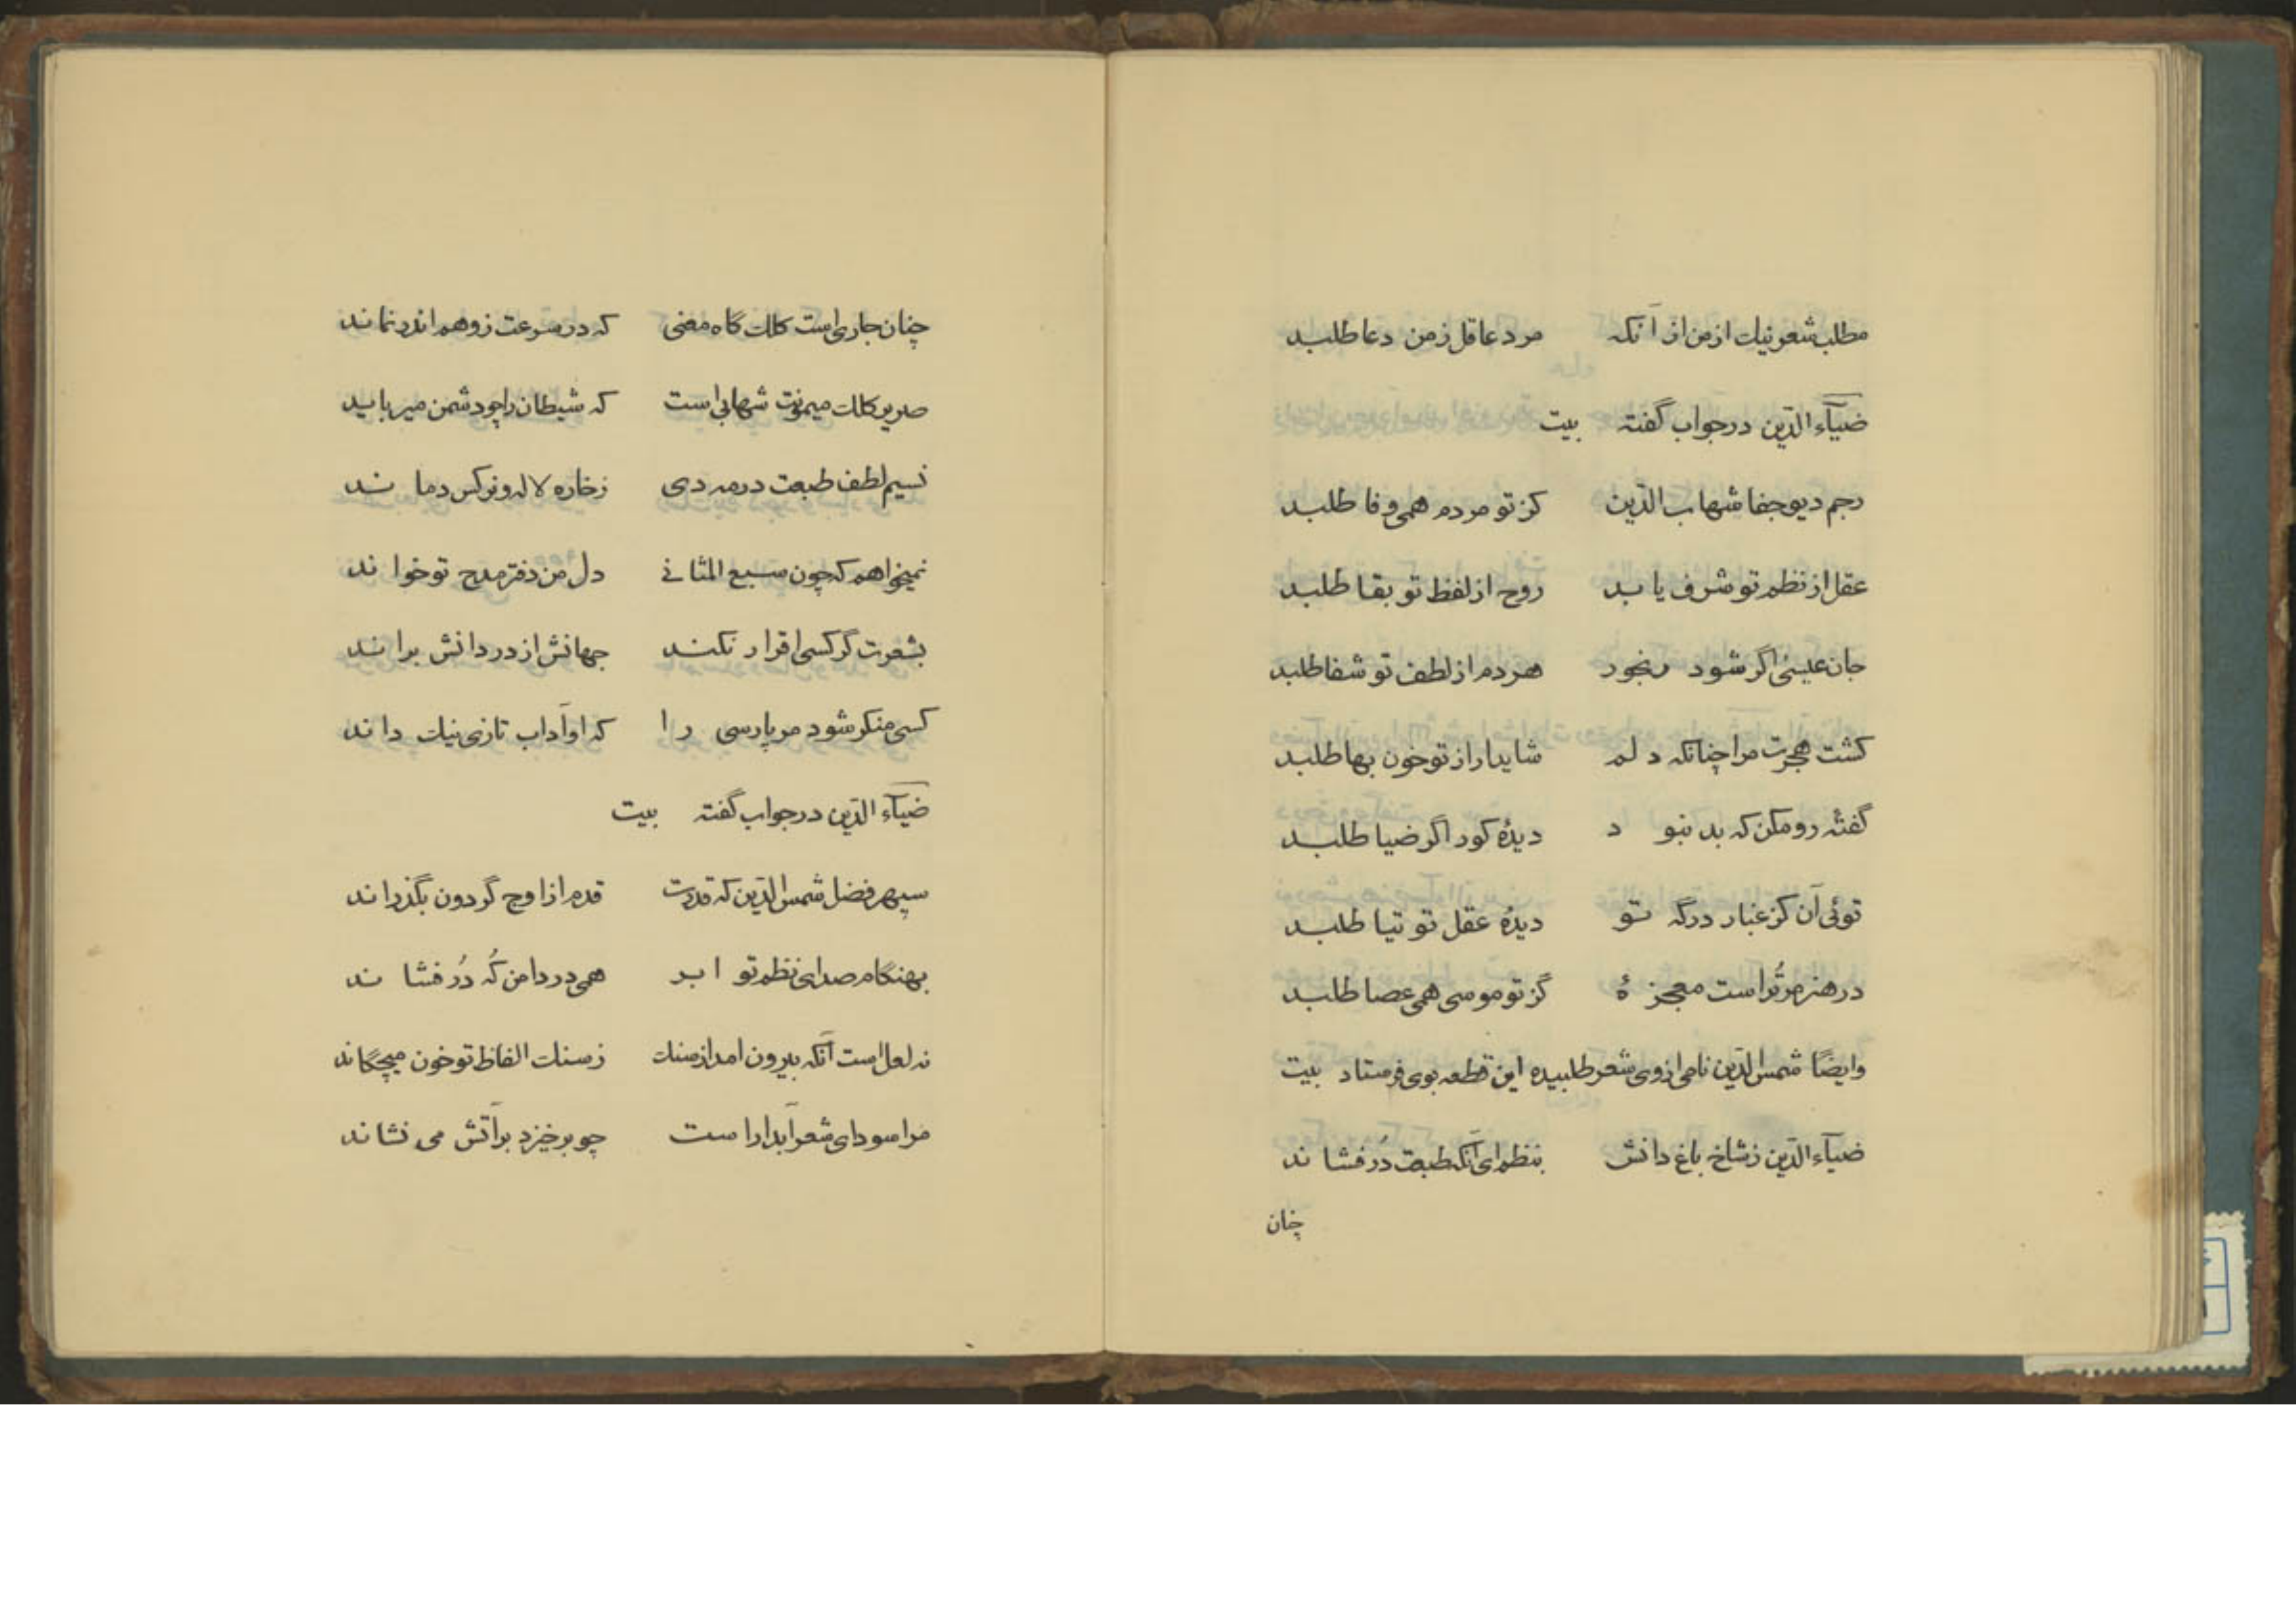 مطلب شعر نیک از من از آنکه مرد عاقل ز من دعا طلبد
ضیآء الدّین در جواب گفته بیت
رجم دیو جفا شهاب الدّین کز تو مردم همی وفا طلبد
عقل از نظم تو شرف یابد روح از لفظ تو بقا طلبد
جان عیسی اگر شود رنجور هر دم از لطف تو شفا طلبد
کشت هجرت مرا چنانکه دلم شاید ار از تو خون بها طلبد
گفته رو مکن که بد نبود دیدهٔ کور اگر ضیا طلبد
توئی آن کز غبار درگه تو دیدهٔ عقل توتیا طلبد
در هنر مر تُراست معجزهٔ کز تو موسی همی عصا طلبد
وایضًا شمس الدّین نامی از وی شعر طلبیده این قطعه بوی فرستاد بیت
ضیآء الدّین ز شاخ باغ دانش بنظم ای آنکه طبعت دُر فشاند
چنان
چنان جاری است کلک گاه معنی که در سرعت ز وهم اندر نماند
صریر کلک میمونت شهابی است که شیطان را چو دشمن میرباید
نسیم لطف طبعت در مه دی ز خاره لاله و نرکس دماند
نمیخواهم که چون سبع المثانی دل من دفتر مدح تو خواند
بشعرت گر کسی اقرار نکند جهانش از در دانش براند
کسی منکر شود مر پارسی را که او آداب تازی نیک داند
ضیآء الدّین در جواب گفته بیت
سپهر فضل شمس الدّین که قدرت قدم از اوج گردون بگذراند
بهنگام صدای نظم تو ابر همی در دامن کُه دُر فشاند
نه لعل است آنکه بیرون امد از سنک ز سنک الفاظ تو خون میچکاند
مرا سودای شعر آبدار است چو برخیزد بر آتش می نشاند